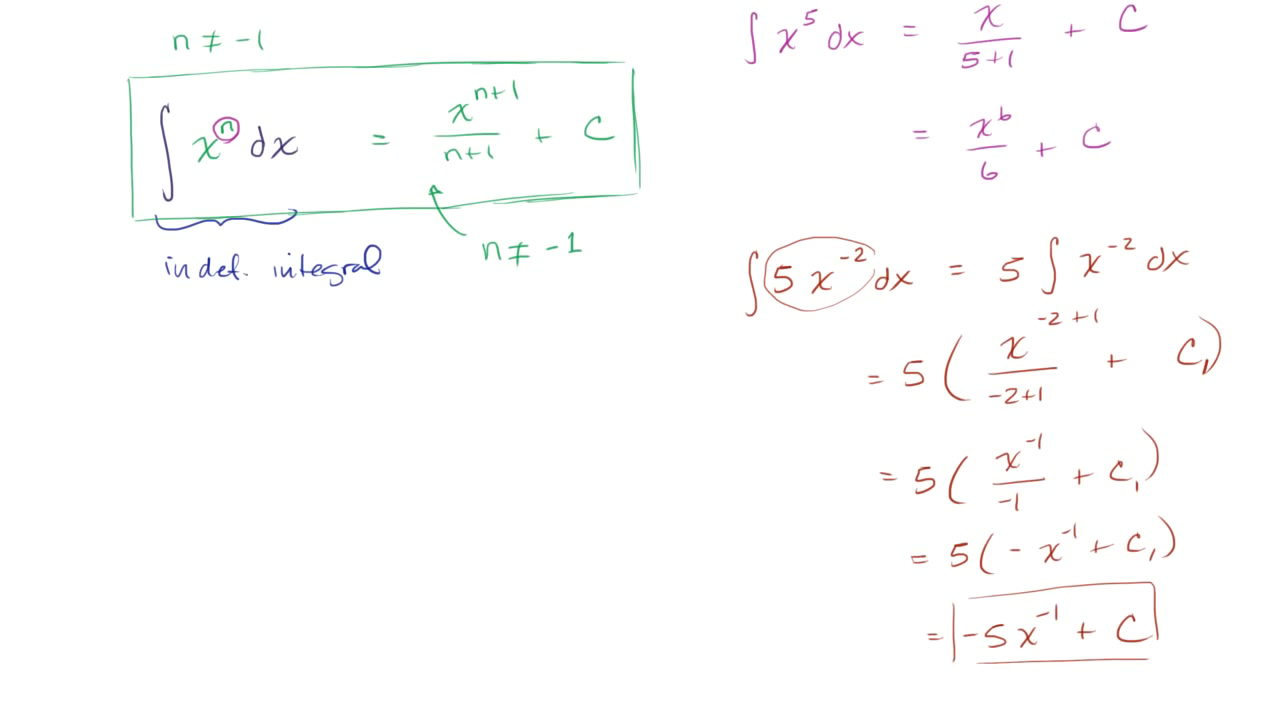 n ≠ -1
∫ xⁿ dx = xⁿ⁺¹/(n+1) + C
indef. integral
n ≠ -1
∫ x⁵ dx = x/(5+1) + C
= x⁶/6 + C
∫ 5 x⁻² dx = 5 ∫ x⁻² dx
= 5 ( x⁻²⁺¹/(-2+1) + C₁)
= 5 ( x⁻¹/-1 + C₁)
= 5 (- x⁻¹ + C₁)
= -5x⁻¹ + C